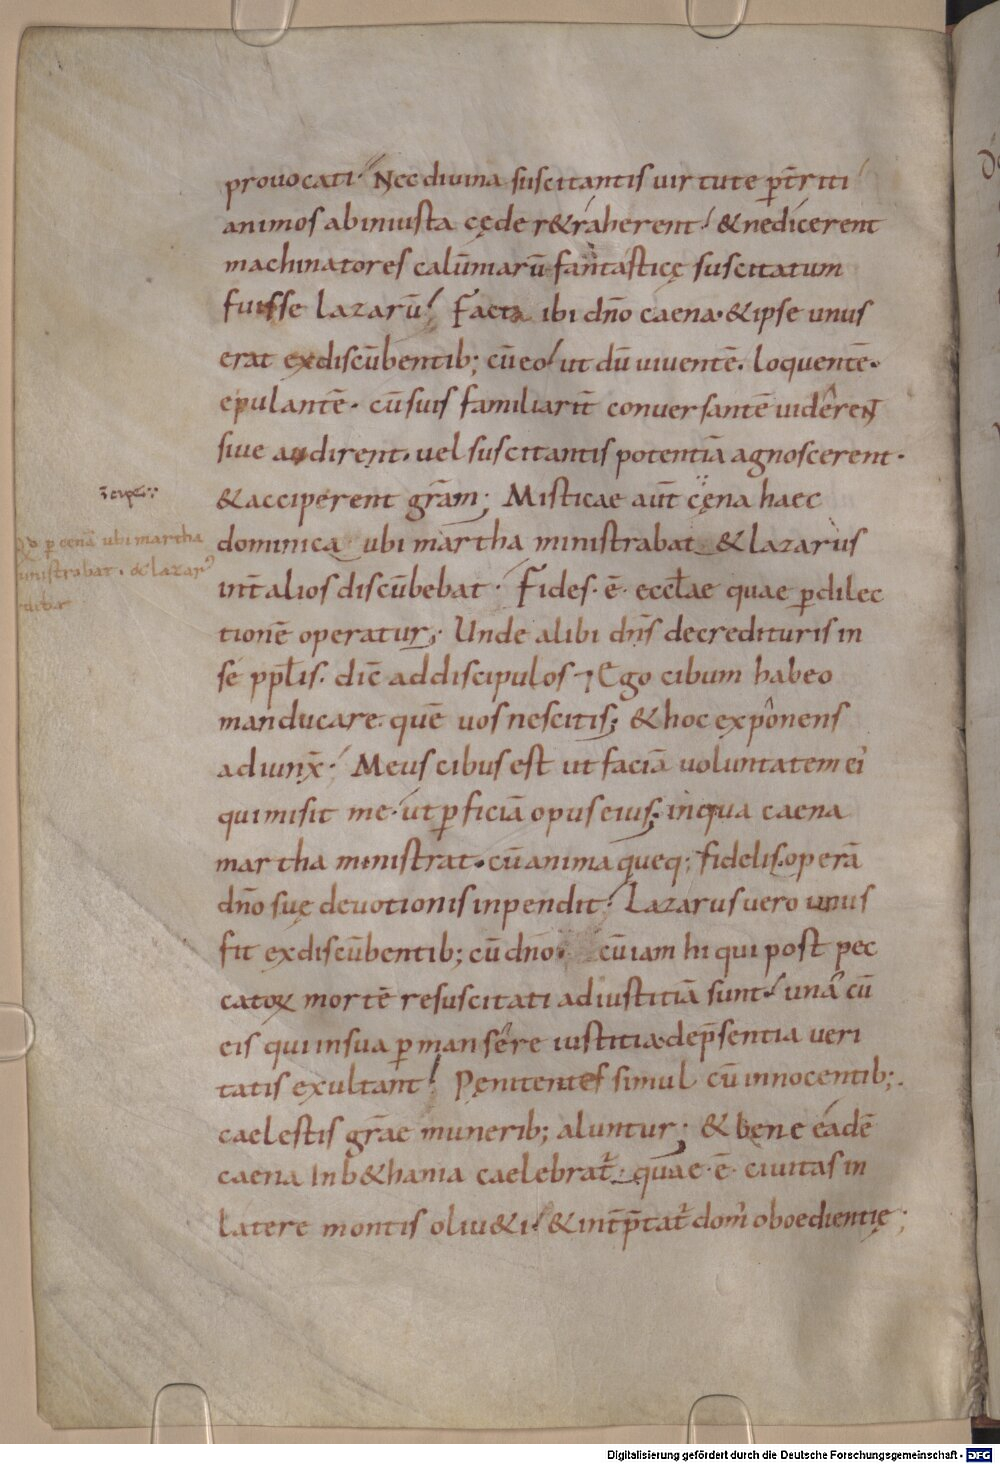 provocati· Nec divina suscitantis virtute p̄t̄rriti
animos abiniusta cęde r&raherent· & nedicerent
machinatores calūniarū fantasticę suscitatum
fuisse lazarū· Facta ibi dn̄o caena·& ipse unus
erat exdiscūbentib; cū eo· ut dū viventē· loquentē·
epulantē· cū suis familiarit̄ conversantē vidêreNT
sive audirent· vel suscitantis potentiā agnoscerent·
& acciperent grām; Misticae aūt cęna haec
dominica ubi martha ministrabat & lazarus
int̄ alios discūbebat· Fides· ē· eccłae quae ꝑ dilec
tionē operatur; Unde alibi dn̄s decredituris in
sé pp̄lis· dic̄ addiscipulos· Ego cibum habeo
manducare quē vos nescitis; & hoc expônens
adiunx̄· Meus cibus est ut faciā voluntatem ei'
qui misit me· ut ꝑficiā opus eius; inqua caena
martha ministrat· cū anima queq; fidelis operā
dn̄o suę devotionis inpendit· Lazarus vero unus
fit exdiscūbentib; cū dn̄o· cū iam hi qui post pec
catoꝝ mortē resuscitati adiustitiā sunt· unâ cū
eis qui insua ꝑmansêre iustitia· dep̄sentia veri
tatis exultant· Pęnitentes simul cū innocentib;
caelestis grāe munerib; aluntur; & bene eadē
caena In b&hania caelebrat̄· quae· ē· civitas in
latere montis oliv&i· & int̄p̄tat̄ dom' oboedientię;
ꝑ cenā ubi martha
ministrabat· & lazar'
Digitalisierung gefördert durch die Deutsche Forschungsgemeinschaft - DFG